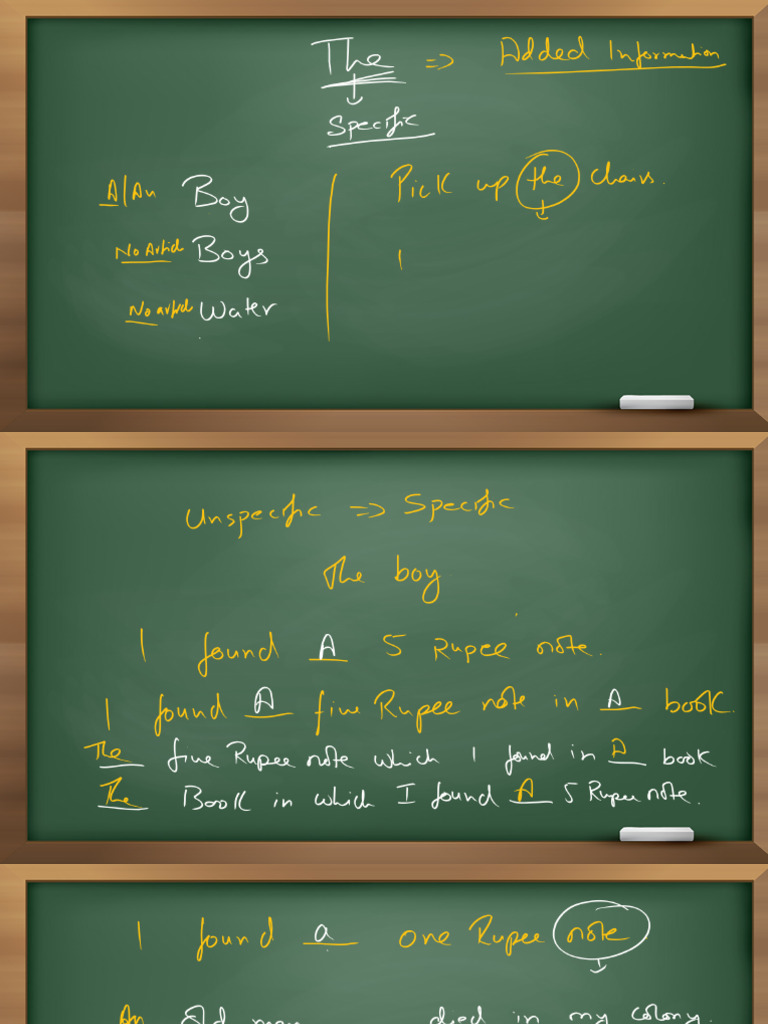 The => Added Information
Specific
A/An Boy
Pick up the chairs.
No Article Boys
I
No article Water
Unspecific => Specific
The boy
I found A 5 Rupee note.
I found A five Rupee note in A book.
The five Rupee note which I found in A book
The Book in which I found A 5 Rupee note.
I found a one Rupee note
An old man died in my colony.